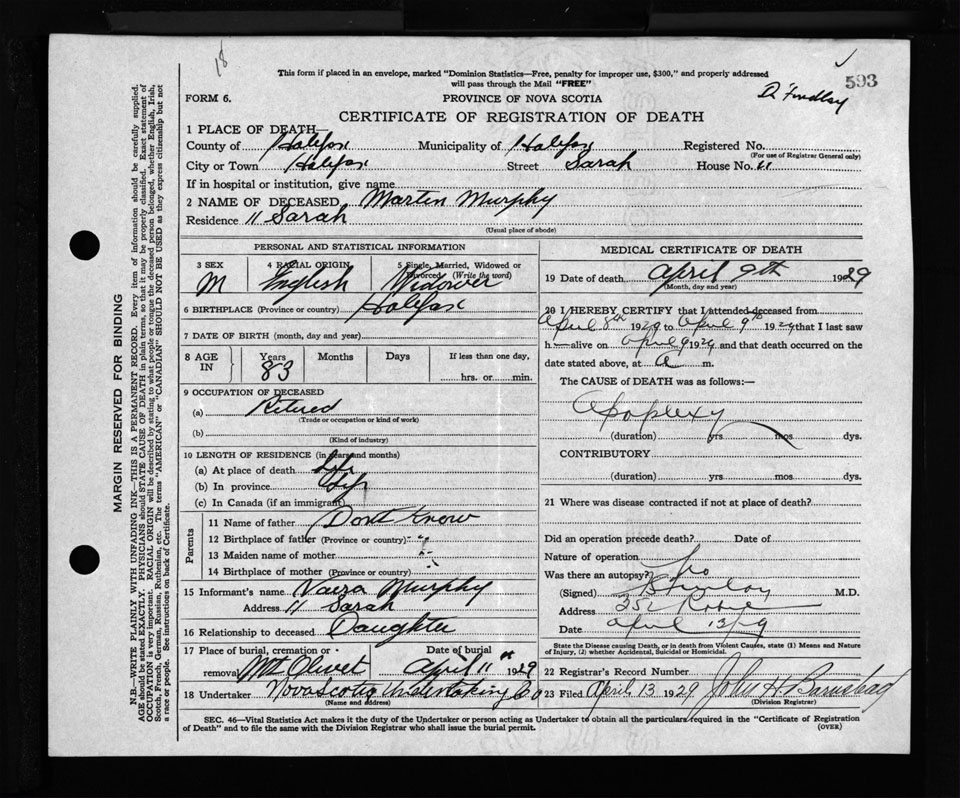 18
This form if placed in an envelope, marked "Dominion Statistics—Free, penalty for improper use, $300," and properly addressed
will pass through the Mail "FREE"
593
D. Findlay
FORM 6.
PROVINCE OF NOVA SCOTIA
CERTIFICATE OF REGISTRATION OF DEATH
1 PLACE OF DEATH—
County of Halifax Municipality of Halifax Registered No.
(For use of Registrar General only)
City or Town Halifax Street Sarah House No. 11
If in hospital or institution, give name
2 NAME OF DECEASED Martin Murphy
Residence 11 Sarah
(Usual place of abode)
PERSONAL AND STATISTICAL INFORMATION
3 SEX 4 RACIAL ORIGIN 5 Single, Married, Widowed or Divorced (Write the word)
M English Widower
6 BIRTHPLACE (Province or country) Halifax
7 DATE OF BIRTH (month, day and year)
8 AGE IN Years Months Days If less than one day,
83 hrs. or min.
9 OCCUPATION OF DECEASED
(a) Retired
(Trade or occupation or kind of work)
(b)
(Kind of industry)
10 LENGTH OF RESIDENCE (in years and months)
(a) At place of death Life
(b) In province Life
(c) In Canada (if an immigrant)
Parents
11 Name of father Dont Know
12 Birthplace of father (Province or country) "
13 Maiden name of mother "
14 Birthplace of mother (Province or country) "
15 Informant's name Murphy
Address 11 Sarah
16 Relationship to deceased Daughter
17 Place of burial, cremation or removal Date of burial
Mt Olivet April 11th 1929
18 Undertaker Nova Scotia Undertaking Co
(Name and address)
MEDICAL CERTIFICATE OF DEATH
19 Date of death April 9th 1929
(Month, day and year)
20 I HEREBY CERTIFY that I attended deceased from
April 8th 1929 to April 9th 1929 that I last saw
h— alive on April 9 1929 and that death occurred on the
date stated above, at a m.
The CAUSE of DEATH was as follows:—
Apoplexy
(duration) yrs mos dys.
CONTRIBUTORY
(duration) yrs. mos. dys.
21 Where was disease contracted if not at place of death?
Did an operation precede death? Date of
Nature of operation
Was there an autopsy? No
(Signed) D Findlay M.D.
Address 352 Robie
Date April 13/29
State the Disease causing Death, or in death from Violent Causes, state (1) Means and Nature
of Injury, (2) whether Accidental, Suicidal or Homicidal.
22 Registrar's Record Number
23 Filed April 13 1929 John H. Barnstead
(Division Registrar)
SEC. 46—Vital Statistics Act makes it the duty of the Undertaker or person acting as Undertaker to obtain all the particulars required in the "Certificate of Registration
of Death" and to file the same with the Division Registrar who shall issue the burial permit.
(OVER)
MARGIN RESERVED FOR BINDING
N.B.—WRITE PLAINLY WITH UNFADING INK—THIS IS A PERMANENT RECORD. Every item of information should be carefully supplied.
AGE should be stated EXACTLY. PHYSICIANS should STATE CAUSE OF DEATH in plain terms, so that it may be properly classified. Exact statement of
OCCUPATION is very important. RACIAL ORIGIN will be described by stating to what people or tongue the deceased person belonged, whether English, Irish,
Scotch, French, German, Russian, Ruthenian, etc. The terms "AMERICAN" or "CANADIAN" SHOULD NOT BE USED as they express citizenship but not
a race or people. See instructions on back of Certificate.